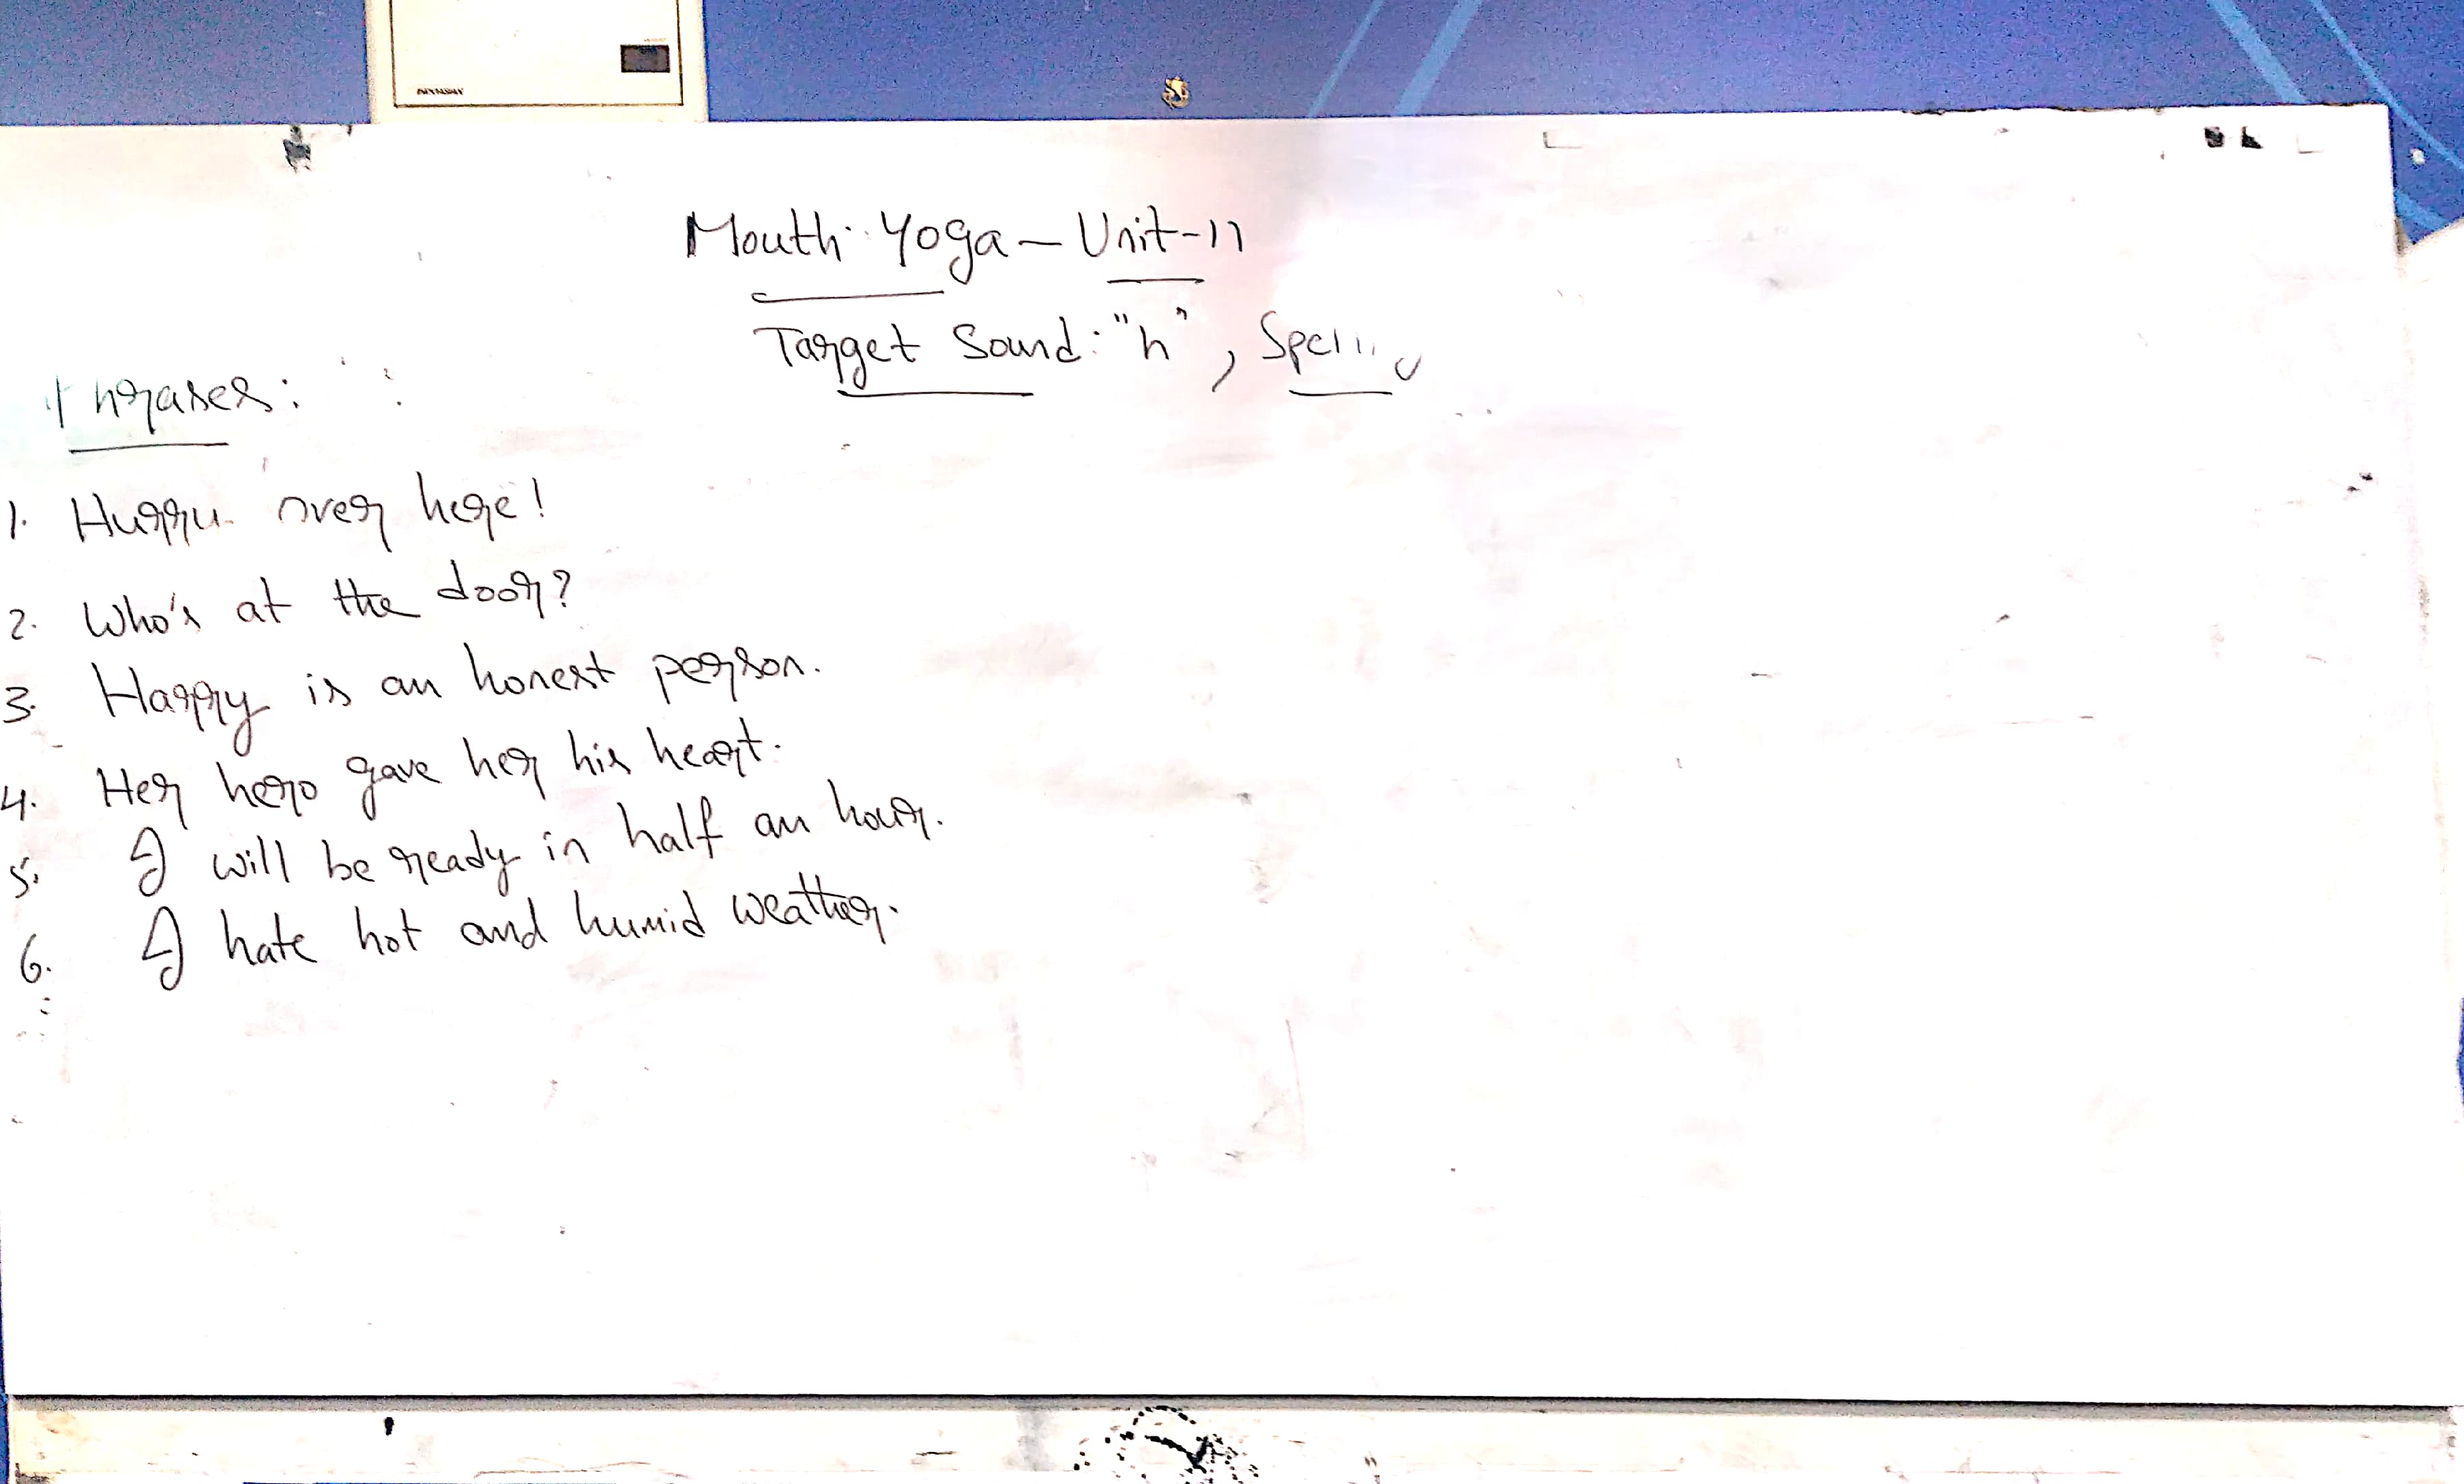 Mouth Yoga - Unit-11
Target Sound: "h",
Phrases:
1. Hurry over here!
2. Who's at the door?
3. Harry is an honest person.
4. Her hero gave her his heart.
5. I will be ready in half an hour.
6. I hate hot and humid weather.